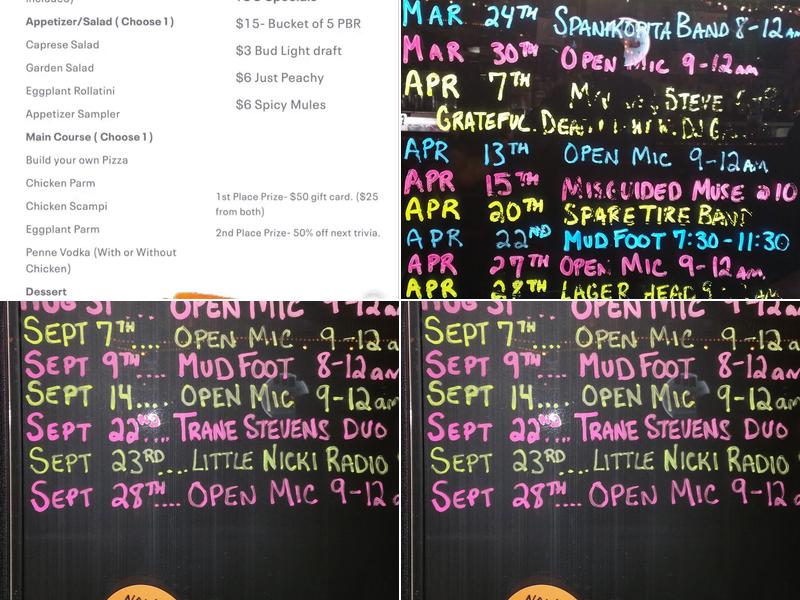 included)
Appetizer/Salad ( Choose 1 )
Caprese Salad
Garden Salad
Eggplant Rollatini
Appetizer Sampler
Main Course ( Choose 1 )
Build your own Pizza
Chicken Parm
Chicken Scampi
Eggplant Parm
Penne Vodka (With or Without
Chicken)
Dessert
Specials
$15- Bucket of 5 PBR
$3 Bud Light draft
$6 Just Peachy
$6 Spicy Mules
1st Place Prize- $50 gift card. ($25
from both)
2nd Place Prize- 50% off next trivia.
MAR 24TH SPANIKOPITA BAND 8-12 AM
MAR 30TH OPEN MIC 9-12am
APR 7TH STEVE
GRATEFUL DEAD DJ
APR 13TH OPEN MIC 9-12AM
APR 15TH MISGUIDED MUSE @10
APR 20TH SPARE TIRE BAND
APR 22ND MUD FOOT 7:30-11:30
APR 27TH OPEN MIC 9-12am
APR 28TH LAGER HEAD 9
AUG 31 OPEN MIC 9-12a
SEPT 7TH.... OPEN MIC. 9-12a
SEPT 9TH.... MUD FOOT 8-12am
SEPT 14.... OPEN MIC 9-12am
SEPT 22ND.... TRANE STEVENS DUO
SEPT 23RD.... LITTLE NICKI RADIO
SEPT 28TH.... OPEN MIC 9-12
AUG 31 OPEN MIC 9-12a
SEPT 7TH.... OPEN MIC. 9-12a
SEPT 9TH.... MUD FOOT 8-12am
SEPT 14.... OPEN MIC 9-12am
SEPT 22ND.... TRANE STEVENS DUO
SEPT 23RD.... LITTLE NICKI RADIO
SEPT 28TH.... OPEN MIC 9-12